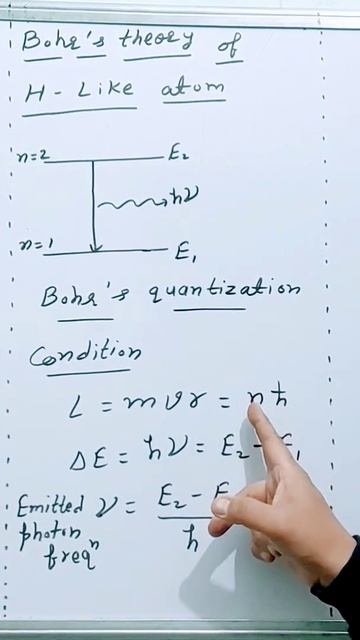 Bohr's theory of
H-Like atom
n=2 E₂
hν
n=1 E₁
Bohr's quantization
Condition
L = mvr = nħ
ΔE = hν = E₂ - E₁
Emitted photon freqⁿ ν = E₂ - E / h